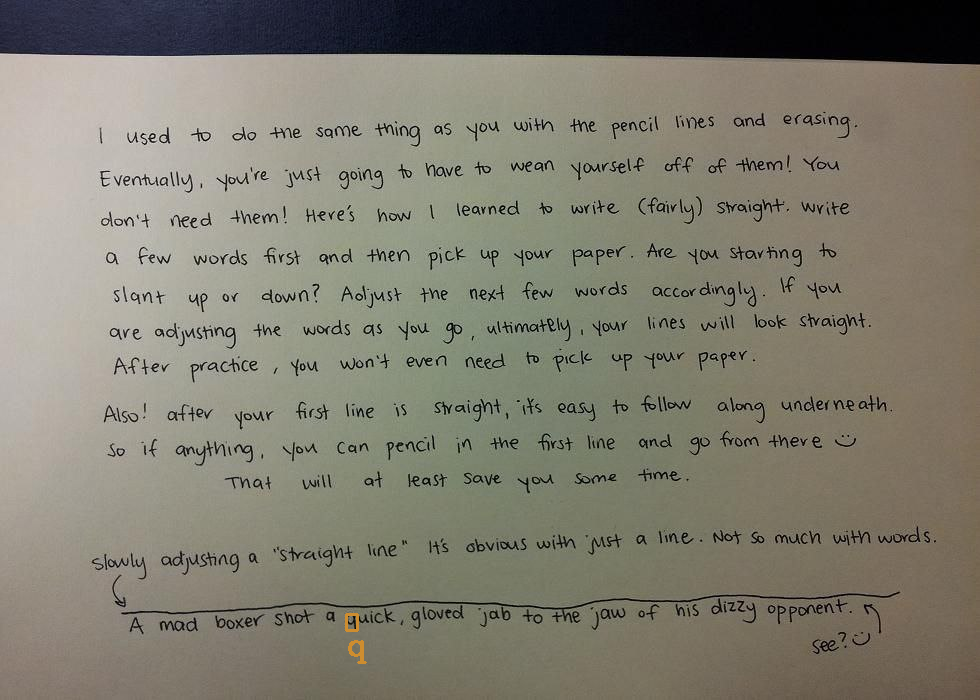 I used to do the same thing as you with the pencil lines and erasing.
Eventually, you're just going to have to wean yourself off of them! You
don't need them! Here's how I learned to write (fairly) straight. Write
a few words first and then pick up your paper. Are you starting to
slant up or down? Adjust the next few words accordingly. If you
are adjusting the words as you go, ultimately, your lines will look straight.
After practice, you won't even need to pick up your paper.
Also! after your first line is straight, it's easy to follow along underneath.
So if anything, you can pencil in the first line and go from there :)
That will at least save you some time.
slowly adjusting a "straight line" It's obvious with just a line. Not so much with words.
A mad boxer shot a quick, gloved jab to the jaw of his dizzy opponent.
q
see? :)